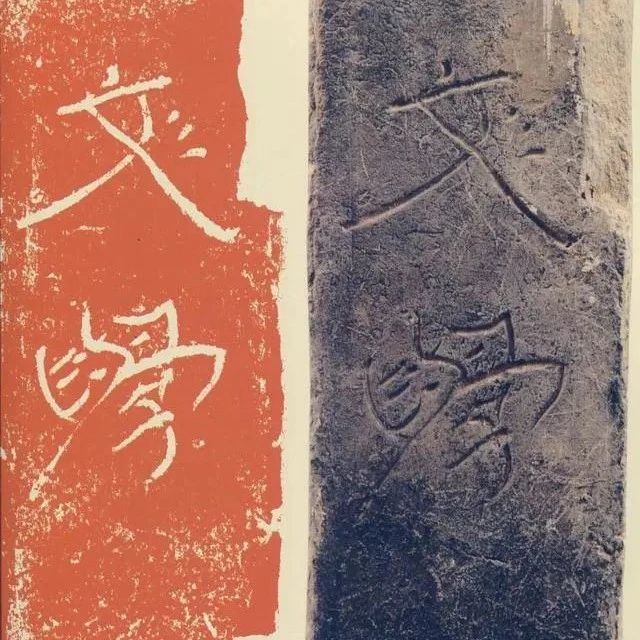 文學
文學